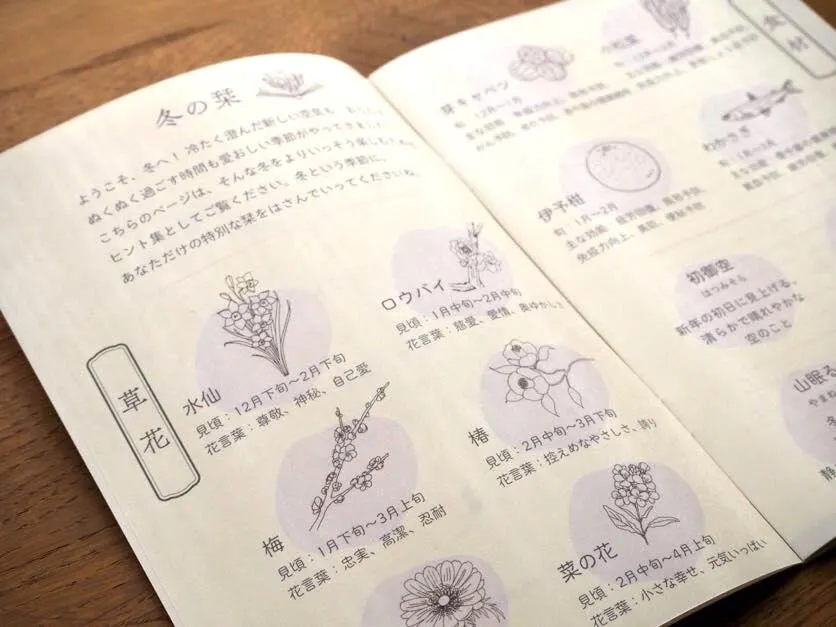 冬の栞
ようこそ、冬へ！冷たく澄んだ新しい空気も
ぬくぬく過ごす時間も愛おしい季節がやってきました
こちらのページは、そんな冬をよりいっそう楽しむ
ヒント集としてご覧ください。冬という季節に、
あなただけの特別な栞をはさんでいってくださいね。
草花
水仙
見頃：12月下旬〜2月下旬
花言葉：尊敬、神秘、自己愛
ロウバイ
見頃：1月中旬〜2月中旬
花言葉：慈愛、愛情、奥ゆかしさ
梅
見頃：1月下旬〜3月上旬
花言葉：忠実、高潔、忍耐
椿
見頃：2月中旬〜3月下旬
花言葉：控えめなやさしさ、誇り
菜の花
見頃：2月中旬〜4月上旬
花言葉：小さな幸せ、元気いっぱい
食材
芽キャベツ
旬 12月〜1月
主な効能
わかさぎ
主な効能
伊予柑
旬 1月〜2月
主な効能 疲労回復、風邪予防、
免疫力向上、美肌、便秘予防
初御空
はつみそら
新年の初日に見上げる、
清らかで晴れやかな
空のこと
山眠る